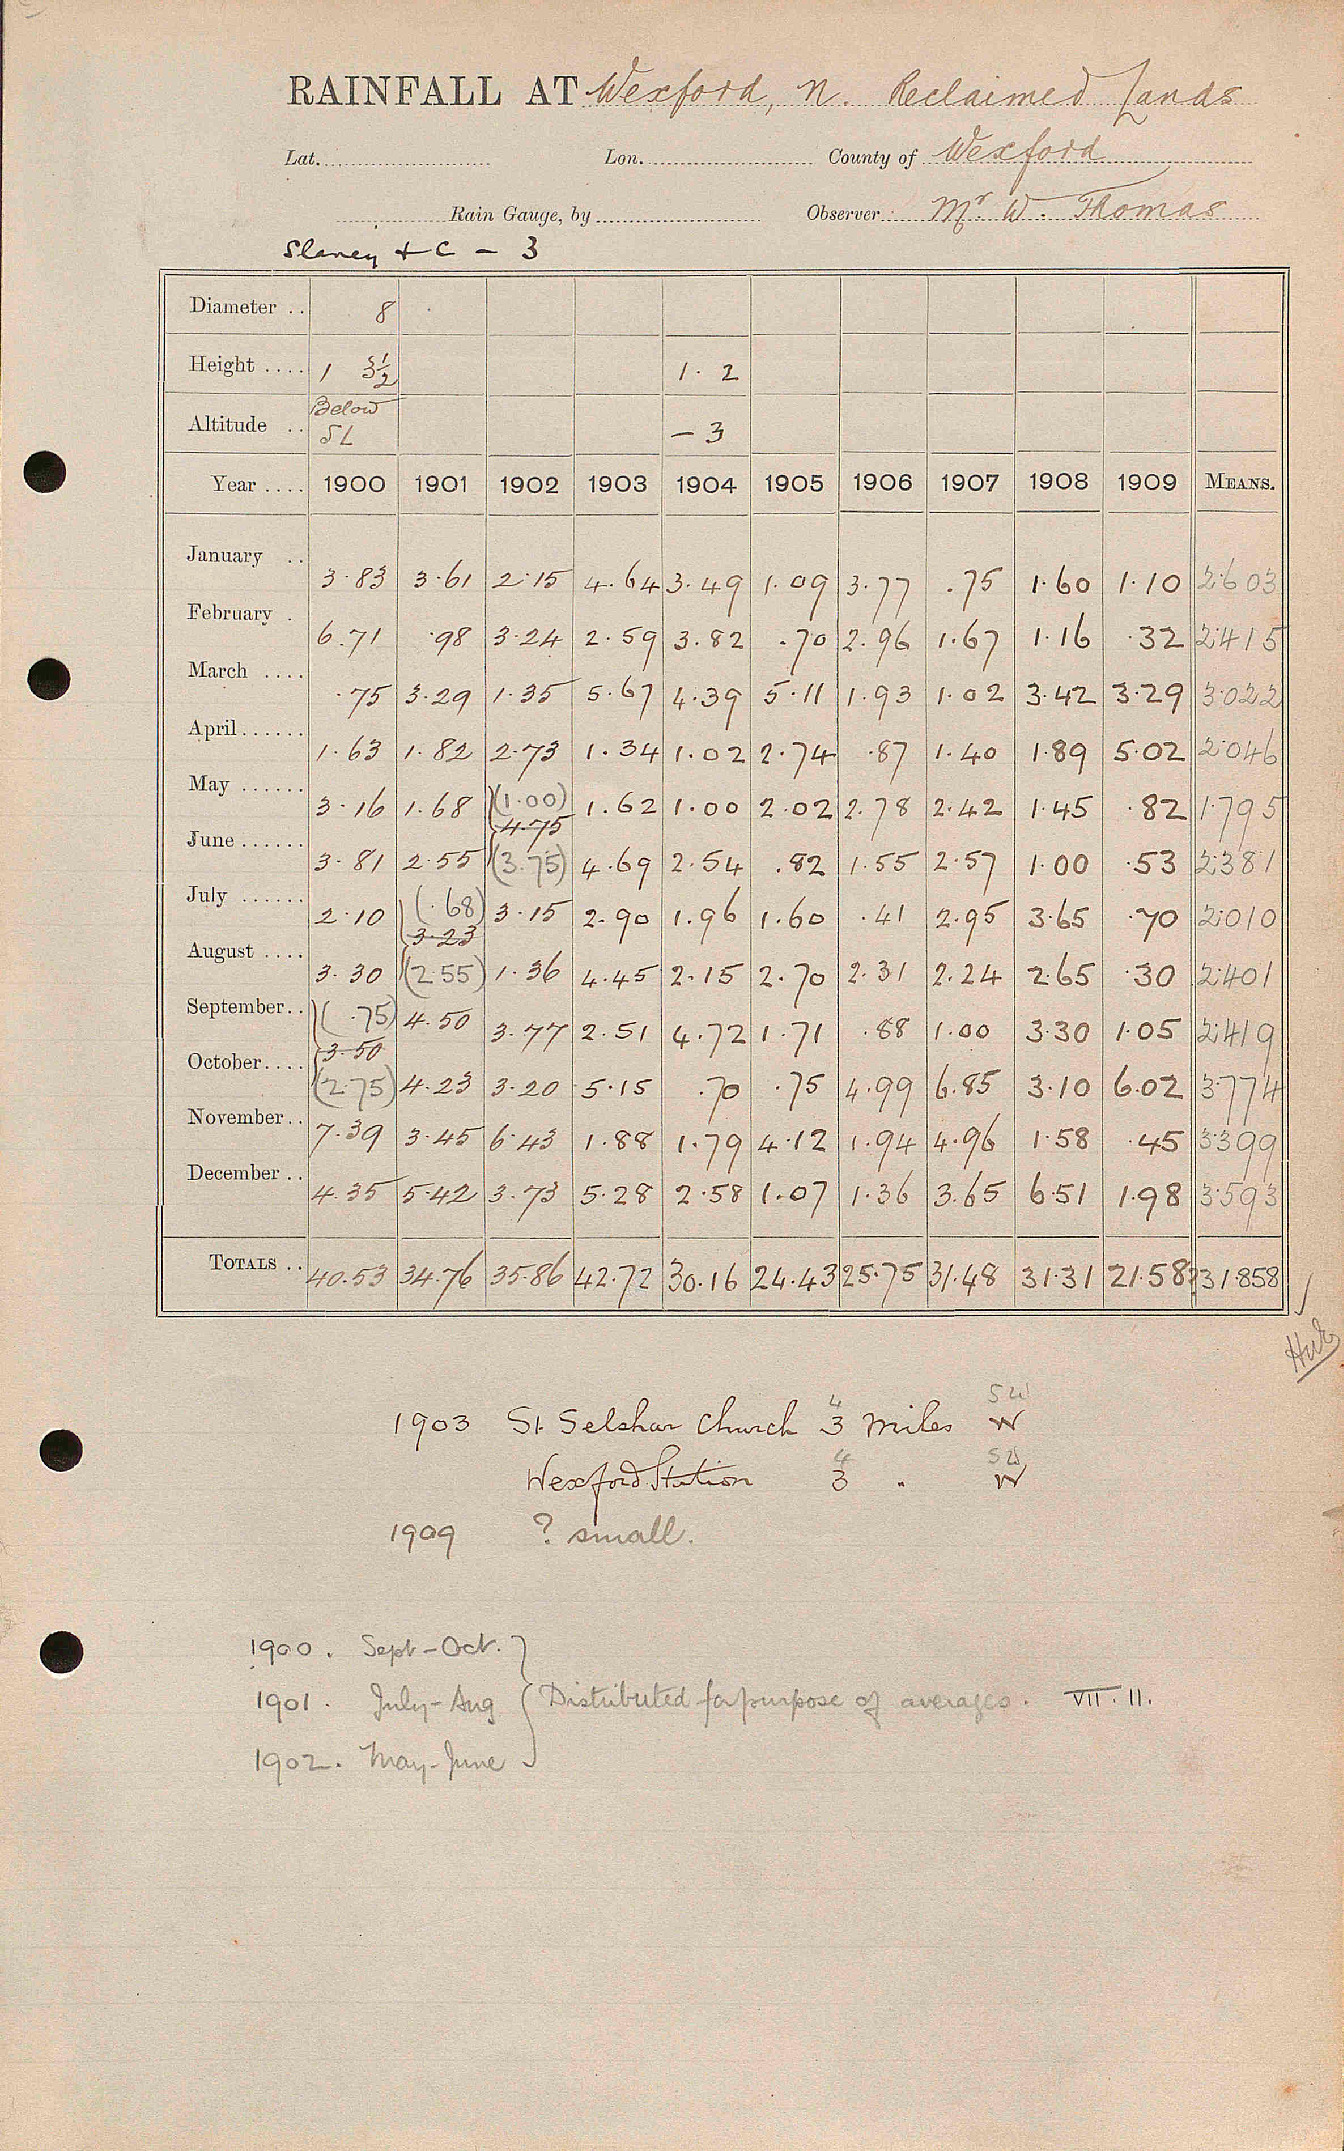 RAINFALL AT Wexford, N. Reclaimed Lands
Lat. Lon. County of Wexford
Rain Gauge, by Observer Mr W. Thomas
Slaney + C - 3
Diameter .. 8
Height .... 1 3½ 1. 2
Altitude .. Below SL - 3
Year .... 1900 1901 1902 1903 1904 1905 1906 1907 1908 1909 MEANS.
January .. 3.83 3.61 2.15 4.64 3.49 1.09 3.77 .75 1.60 1.10 2.603
February . 6.71 .98 3.24 2.59 3.82 .70 2.96 1.67 1.16 .32 2.415
March .... .75 3.29 1.35 5.67 4.39 5.11 1.93 1.02 3.42 3.29 3.022
April...... 1.63 1.82 2.73 1.34 1.02 2.74 .87 1.40 1.89 5.02 2.046
May ...... 3.16 1.68 (1.00) 1.62 1.00 2.02 2.78 2.42 1.45 .82 1.795
4.75
June...... 3.81 2.55 (3.75) 4.69 2.54 .82 1.55 2.57 1.00 .53 2.381
July ...... 2.10 (.68) 3.15 2.90 1.96 1.60 .41 2.95 3.65 .70 2.010
3.23
August .... 3.30 (2.55) 1.36 4.45 2.15 2.70 2.31 2.24 2.65 .30 2.401
September.. (.75) 4.50 3.77 2.51 4.72 1.71 .88 1.00 3.30 1.05 2.419
3.50
October.... (2.75) 4.23 3.20 5.15 .70 .75 4.99 6.85 3.10 6.02 3.774
November.. 7.39 3.45 6.43 1.88 1.79 4.12 1.94 4.96 1.58 .45 3.399
December.. 4.35 5.42 3.73 5.28 2.58 1.07 1.36 3.65 6.51 1.98 3.593
TOTALS .. 40.53 34.76 35.86 42.72 30.16 24.43 25.75 31.48 31.31 21.58? 31.858
4 SW
1903 St. Selshar Church 3 miles W
4 SW
Wexford Station 3 " W
1909 ? small.
1900. Sept-Oct.
1901. July-Aug } Distributed for purpose of averages. VII.11.
1902. May-June